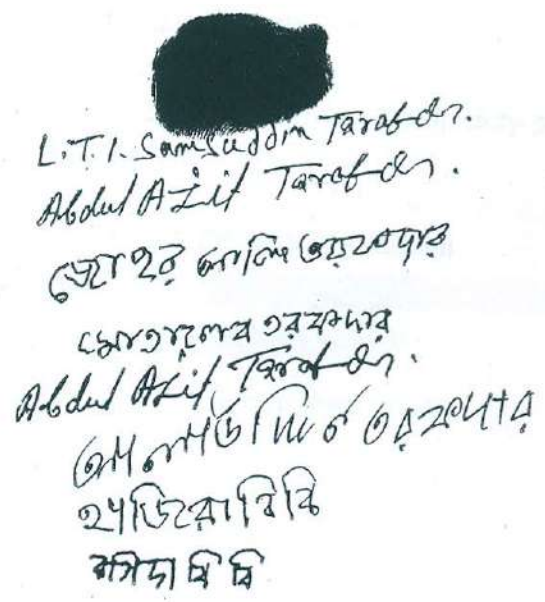 L.T.I. Samsuddin Tarafdar.
Abdul Azit Tarafdar.
জোহর আলি তরফদার
মোতালেব তরফদার
Abdul Azit Tarafdar.
আলাউদ্দিন তরফদার
হাজিরা বিবি
রাসিদা বিবি